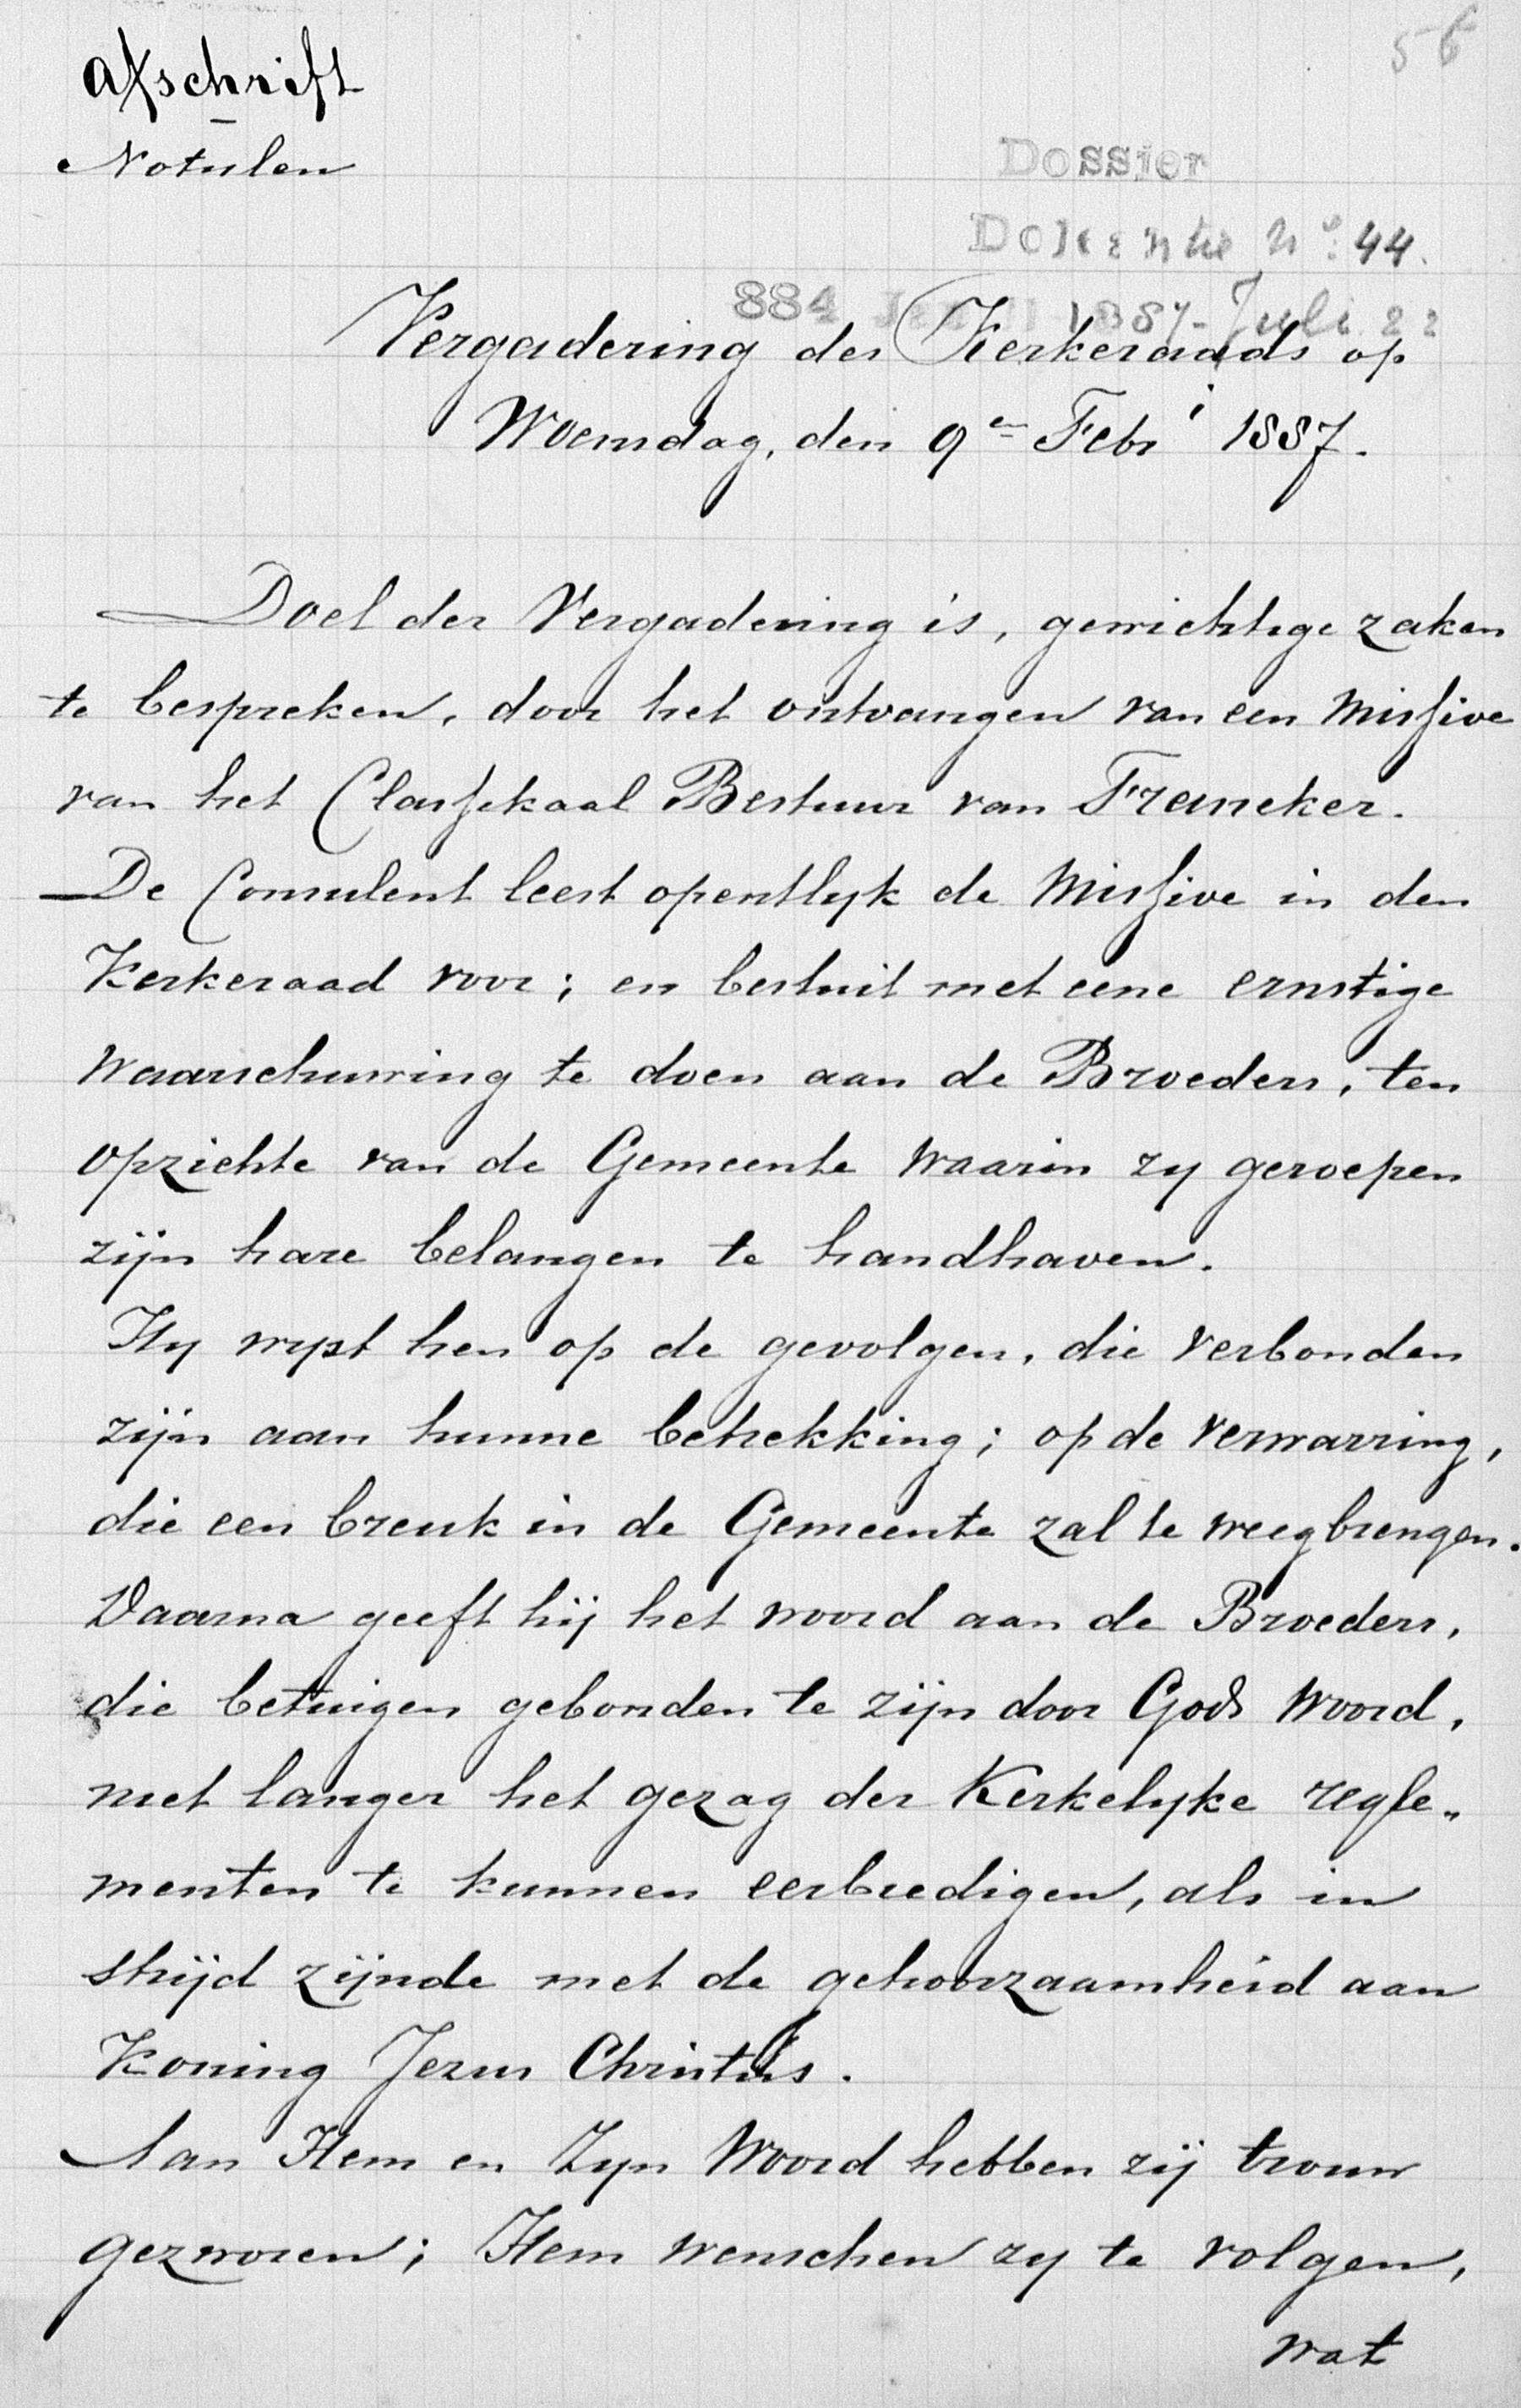 56
Afschrift
Notulen
Dossier
Doleantie No: 44.
884 1887-Juli 22
Vergadering des Kerkeraads op
Woensdag, den 9en Febri 1887.
Doel der Vergadering is, gewichtige zaken
te bespreken, door het ontvangen van een Missive
van het Classikaal Bestuur van Franeker.
De Consulent leest opentlyk de Missive in den
Kerkeraad voor; en besluit met eene ernstige
Waarschuwing te doen aan de Broeders, ten
opzichte van de Gemeente waarin zy geroepen
zijn hare belangen te handhaven.
Hy wyst hen op de gevolgen, die verbonden
zijn aan hunne betrekking; op de verwarring,
die een breuk in de Gemeente zal te weegbrengen.
Daarna geeft hij het woord aan de Broeders,
die betuigen gebonden te zijn door Gods Woord,
niet langer het gezag der Kerkelyke regle„
menten te kunnen eerbiedigen, als in
strijd zijnde met de gehoorzaamheid aan
Koning Jezus Christus.
Aan Hem en Zyn Woord hebben zij trouw
gezworen; Hem wenschen zy te volgen,
wat